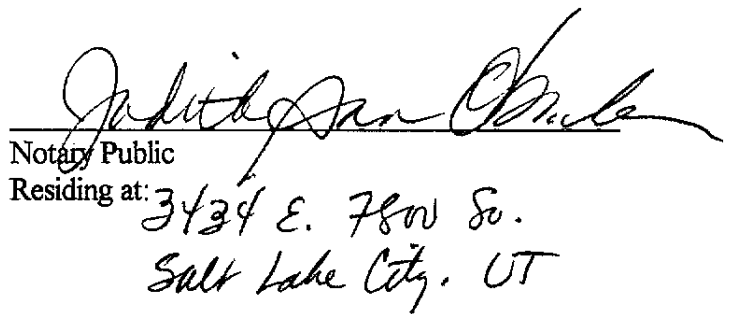 Judith Ann
Notary Public
Residing at: 3434 E. 7800 So.
Salt Lake City, UT